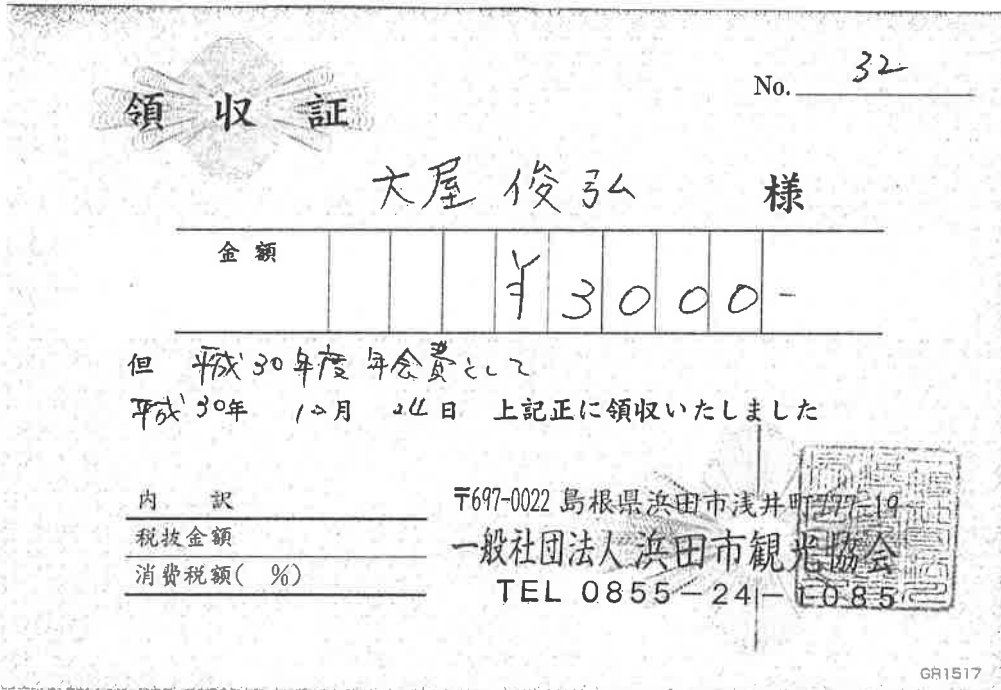 領収証
No. 32
大屋俊弘 様
金額 ¥3000-
但 平成30年度年会費として
平成30年 10月 24日 上記正に領収いたしました
内訳
税抜金額
消費税額( %)
〒697-0022 島根県浜田市浅井町777-19
一般社団法人 浜田市観光協会
TEL 0855-24-1085
GR1517